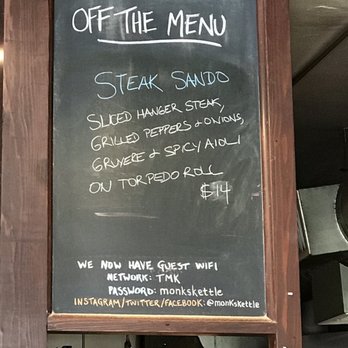 OFF THE MENU
STEAK SANDO
SLICED HANGER STEAK,
GRILLED PEPPERS & ONIONS,
GRUYERE & SPICY AIOLI
ON TORPEDO ROLL
$14
WE NOW HAVE GUEST WIFI
NETWORK: TMK
PASSWORD: monkskettle
INSTAGRAM/TWITTER/FACEBOOK: @monKsKettle